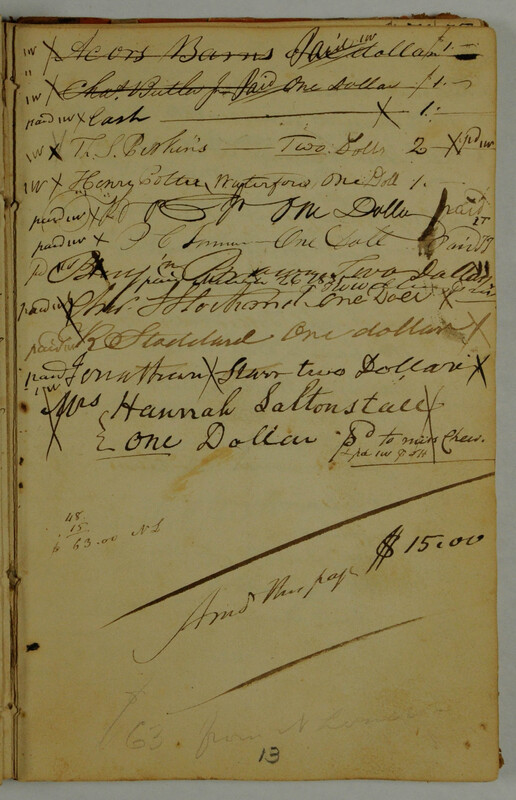 IW X Acors Barns Paid IW dollar $1.-
IW X Chas. Butler Jr Paid One Dollar $1.-
paid IW X Cash X 1.-
IW X Th. S. Perkins — Two Dolls 2 X pd IW
IW X Henry Waterford One Doll 1.
paid IW X One Dollar paid
paid IW X One Doll Paid
Two Dollars
paid IW One Doll X
paid IW R Stoddard One dollar X
paid IW Jonathan X Starr two Dollars X
Mrs Hannah Saltonstall
One Dollar pd to miss Chew.
48
15
$ 63.00 N L
Amt this page $15.00
63 from N London
13